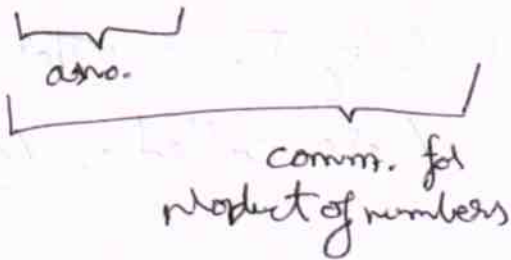 asso.
comm. for
product of numbers